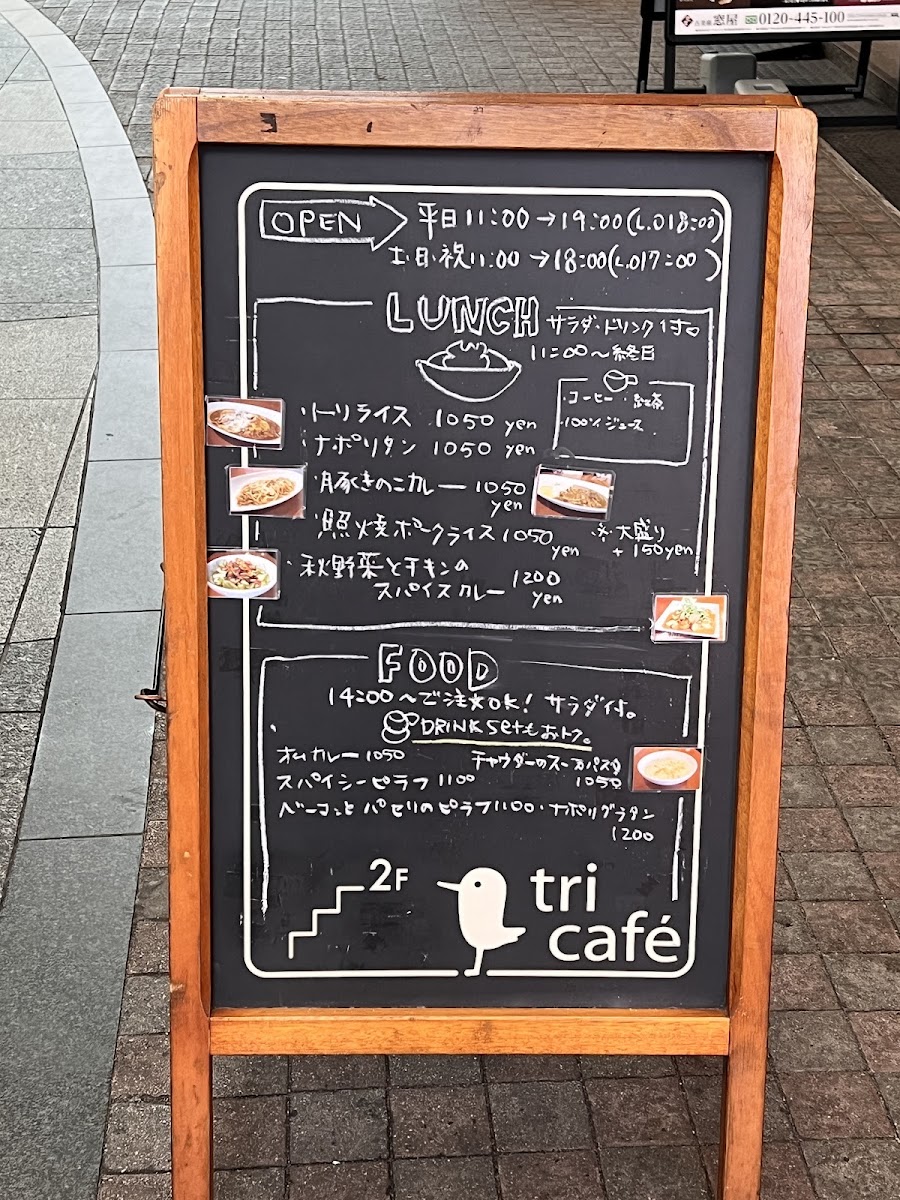 窓屋 0120-445-100
OPEN 平日 11:00→19:00(L.O18:00)
土・日・祝 11:00→18:00(L.O17:00)
LUNCH サラダ・ドリンク付。
11:00〜終日
・コーヒー・紅茶
・100%ジュース
・トリライス 1050 yen
・ナポリタン 1050 yen
・豚きのこカレー 1050 yen
・照焼ポークライス 1050 yen
※大盛り +150yen
・秋野菜とチキンの
スパイスカレー 1200 yen
FOOD
14:00〜でご注文OK! サラダ付。
DRINK setもおトク。
オムカレー 1050
チャウダーのスープパスタ 1050
スパイシーピラフ 1100
ベーコンとパセリのピラフ 1100・ナポリグラタン
1200
2F
tri
café